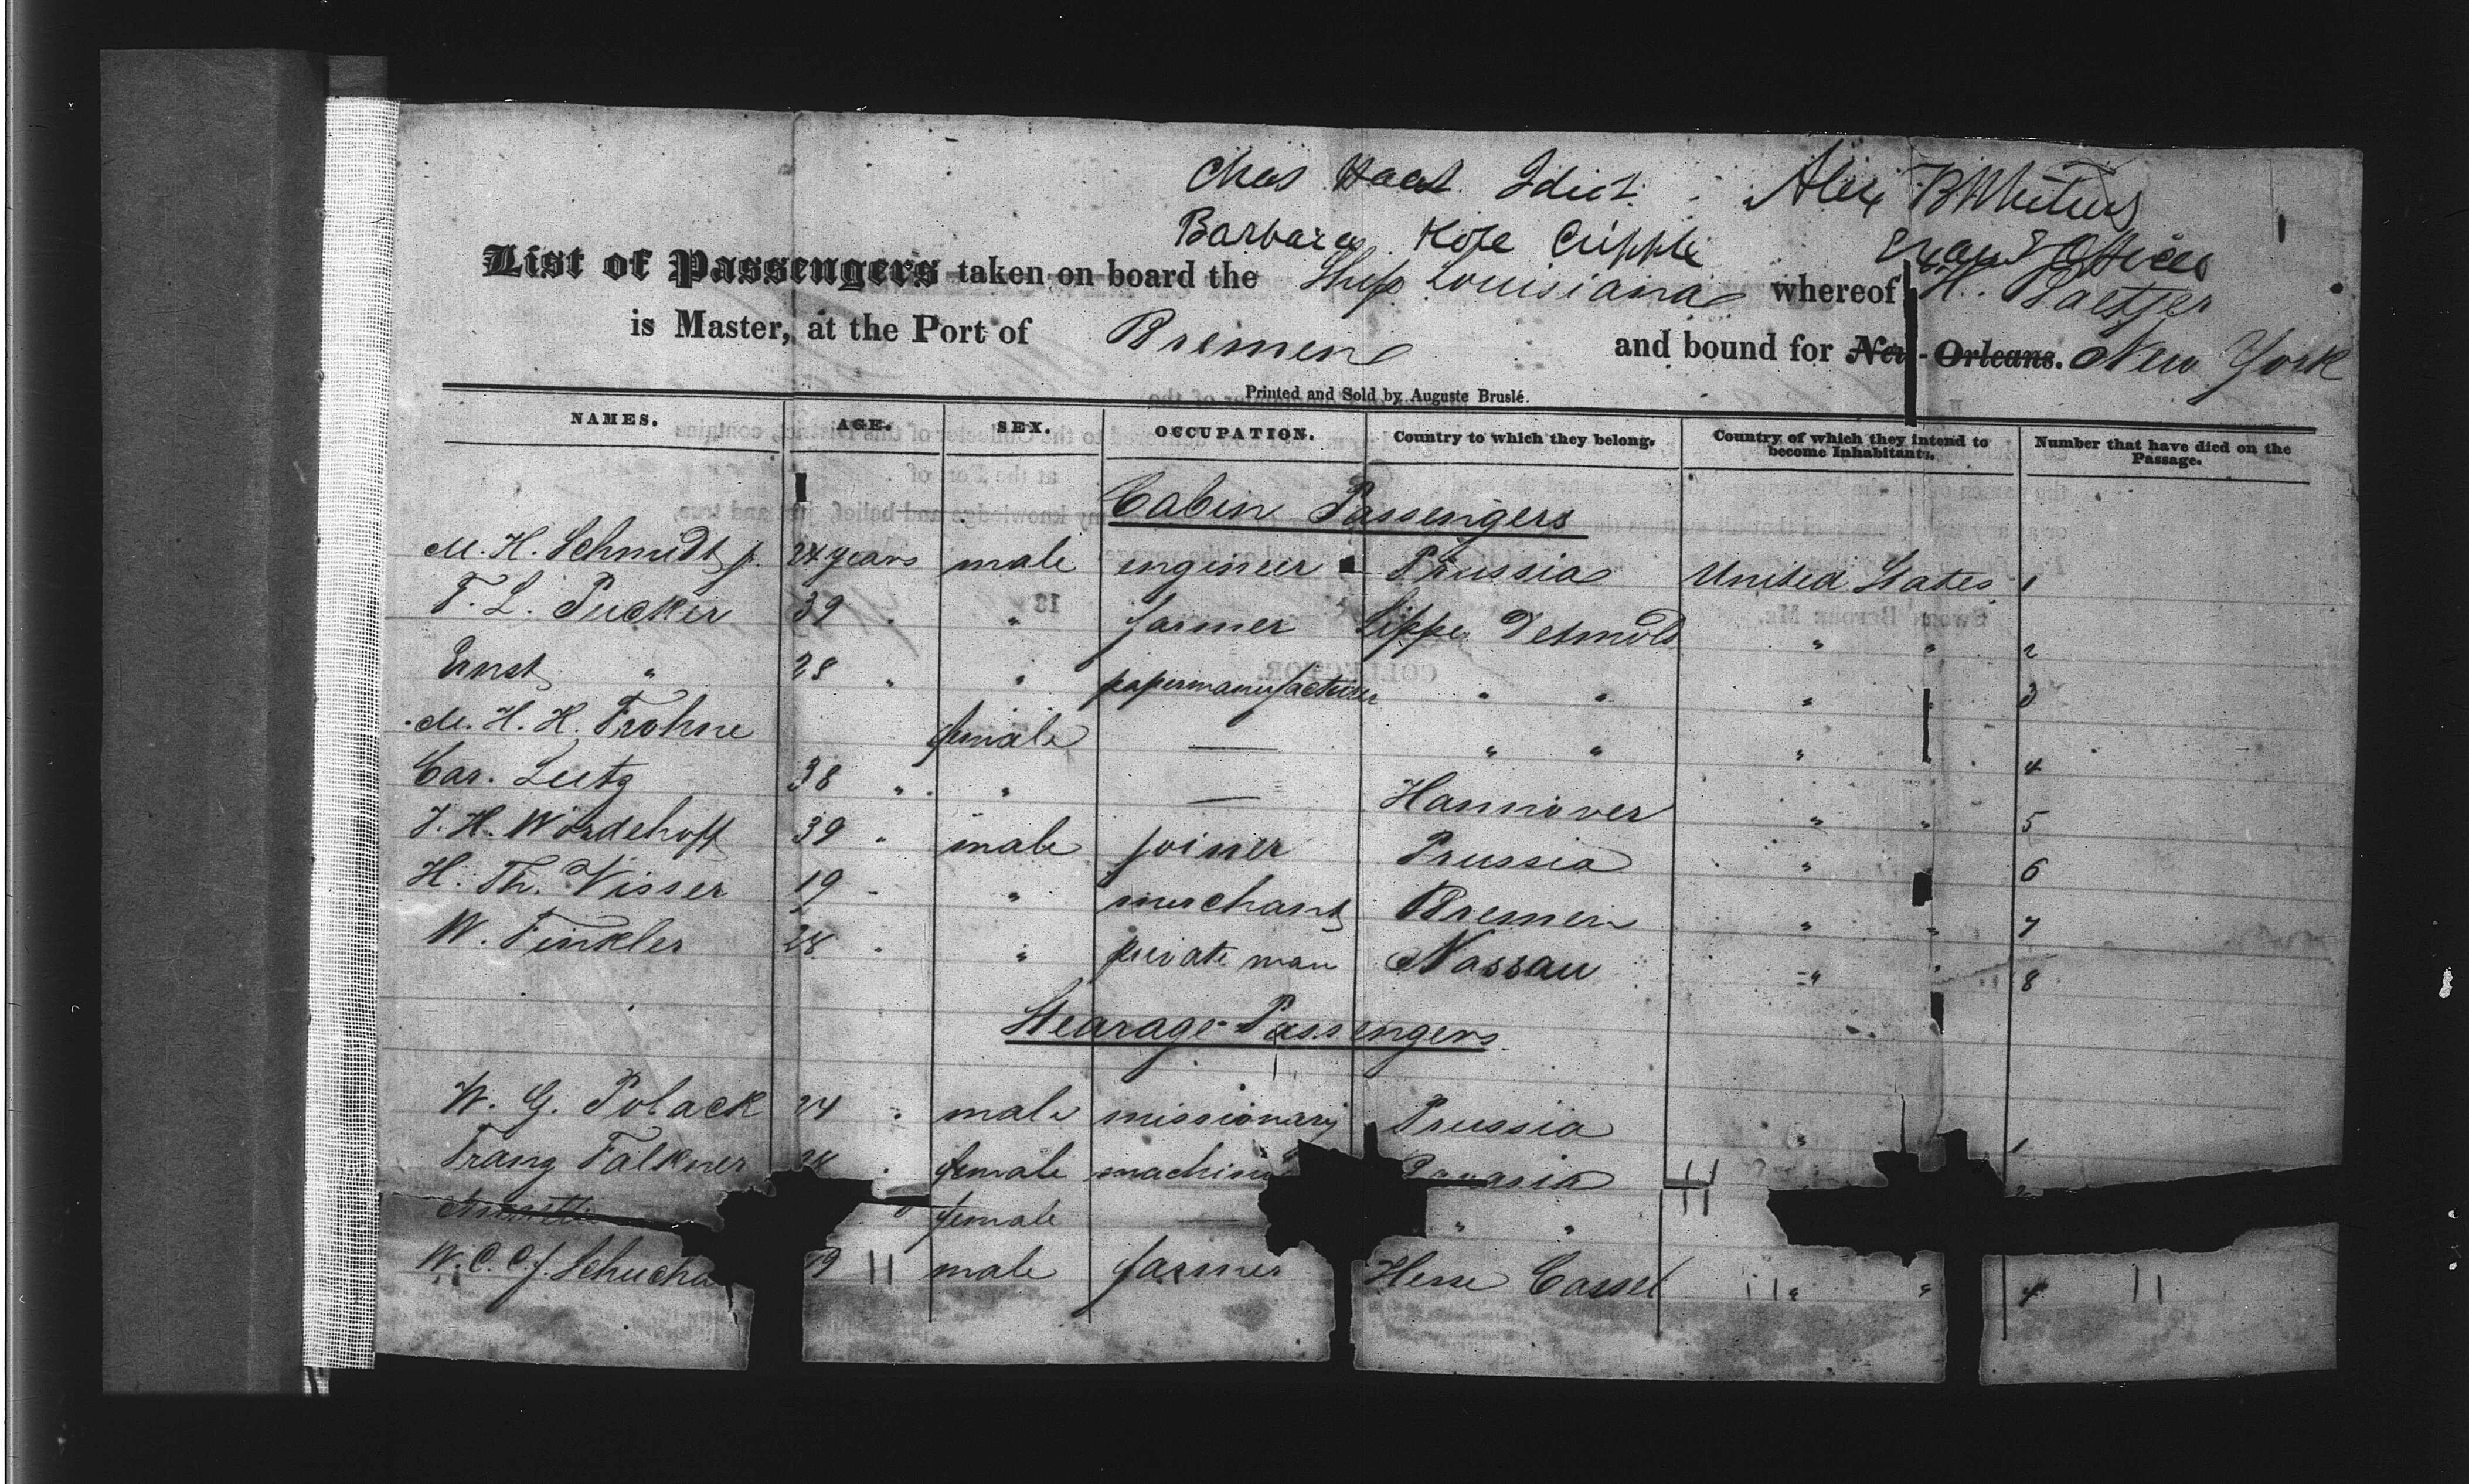 Chas Idiot. Alex
Barbara Cripple
List of Passengers taken on board the Ship Louisiana whereof H.
is Master, at the Port of Bremen and bound for New-Orleans. New York
Printed and Sold by Auguste Bruslé.
NAMES. AGE. SEX. OCCUPATION. Country to which they belong. Country of which they intend to become Inhabitants. Number that have died on the Passage.
Cabin Passengers
M. H. Schmidt 24 years male engineer Prussia United States 1
T. L. Pucker 39 " " farmer Lippe Detmold " " 2
Ernst " 28 " " papermanufacturer " " " " 3
M. H. H. Frohne female — " " " " 4
Car. Lutz 38 " " — Hannover " " 5
J. H. Wördehoff 39 " male joiner Prussia " 6
H. Th. Visser 19 " " merchant Bremen " " 7
W. Finkler 28 " " private man Nassau " " 8
Stearage Passengers
W. G. Polack 24 " male missionary Prussia " 1
Franz Falkner female
female — " "
W. C. C. J. Schucha 19 male farmer Hesse Cassel " " 4